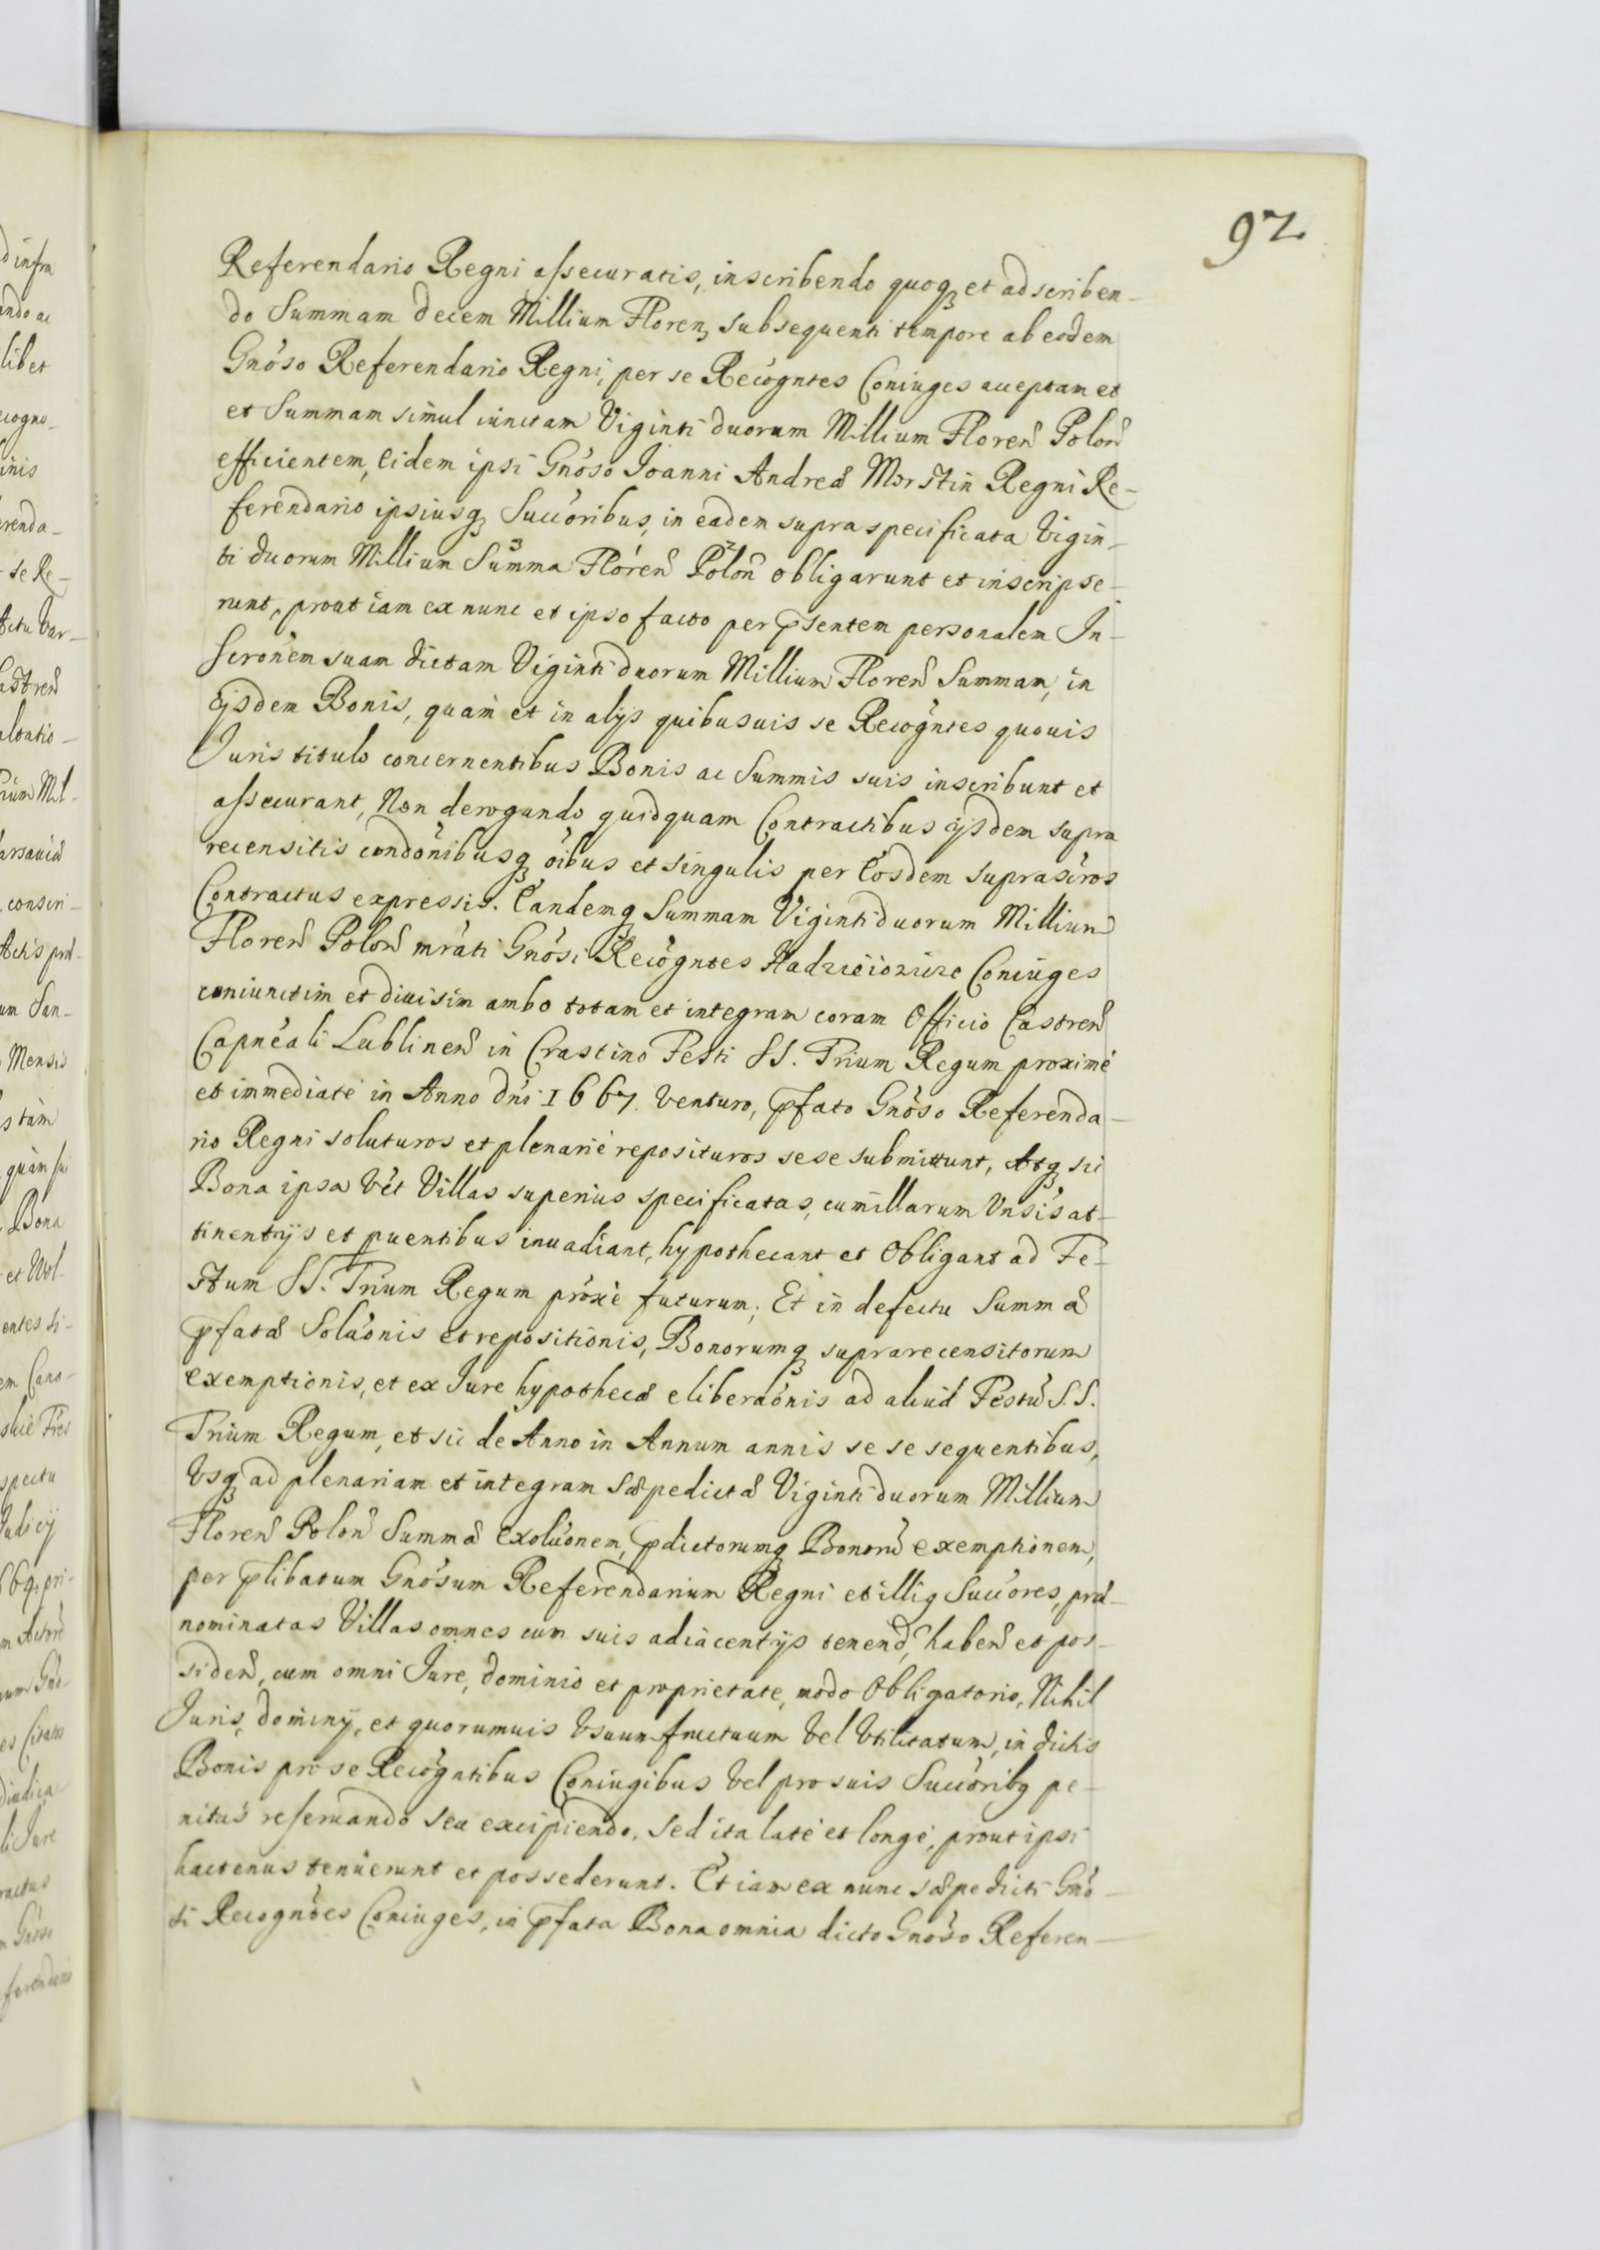 92
Referendario Regni assecuratis, inscribendo quoq₃ et adscriben-
do Summam decem Millium Floren₃ subsequenti tempore ab eodem
Gnōso Referendario Regni, per se Recōgntes Coniuges acceptam et
et Summam simul iunctam Viginti duorum Millium Floren̄ Polon̄
efficientem, Eidem ipsi Gnōso Joanni Andreæ Morstin Regni Re-
ferendario ipsiusq₃ Succōribus, in eadem supraspecificata Vigin-
ti duorum Millium Summa Floren̄ Polon̄ obligarunt et inscripse-
runt, prout iam ex nunc et ipso facto per p̄sentem personalem In-
scrōnem suam dictam Viginti duorum Millium Floren̄ Summam, in
ijsdem Bonis, quam et in alijs quibusuis se Recōgntes quouis
Juris titulo concernentibus Bonis ac Summis suis inscribunt et
assecurant, Non derogando quidquam Contractibus ijsdem supra
recensitis condōnibusq₃ ōibus et singulis per Eosdem suprascr̄os
Contractus expressis. Eandemq₃ Summam Viginti duorum Millium
Floren̄ Polon̄ mrāti Gnōsi Recōgntes Coniuges
coniunctim et diuisim ambo totam et integram coram Officio Castren̄
Capnēali Lublinen̄ in Crastino Festi SS. Trium Regum proximé
et immediaté in Anno dn̄i 1667. Venturo, p̄fato Gnōso Referenda-
rio Regni soluturos et plenarié reposituros sese submittunt, Atq₃ sic
Bona ipsa Vēt Villas superius specificatas, cum illarum Vnsīs at-
tinentijs et puentibus inuadiant, hypothecant et Obligant ad Fe-
stum SS. Trium Regum prōxé futurum; Et in defectu Summæ
p̄fatæ Soluōnis et repositionis, Bonorumq₃ suprarecensitorum
exemptionis, et ex Jure hypothecæ eliberaōnis ad aliud Festū S.S.
Trium Regum, et sic de Anno in Annum annis se se sequentibus,
Vsq₃ ad plenariam et integram Sæpedictæ Viginti duorum Millium
Floren̄ Polon̄ Summæ Exoluōnem, p̄dictorumq₃ Bonorū exemptionem,
per p̄libatum Gnōsum Referendarium Regni et illiq Succōres, præ-
nominatas Villas omnes cum suis adiacentijs tenend̄, haben̄ et pos-
siden̄, cum omni Jure, dominio et proprietate, modo Obligatorio, Nihil
Juris, dominij, et quorumuis Vsuumfructuum Vel Vtilitatum, in dictis
Bonis pro se Recōgntibus Coniugibus Vel pro suis Succōribq pe-
nitus reseruando seu excipiendo, sed ita laté et longé, prout ipsi
hactenus tenuerunt et possederunt. Et iam ex nunc sæpedicti Gnō-
si Recogntes Coniuges, in p̄fata Bona omnia dicto Gnōso Referen-